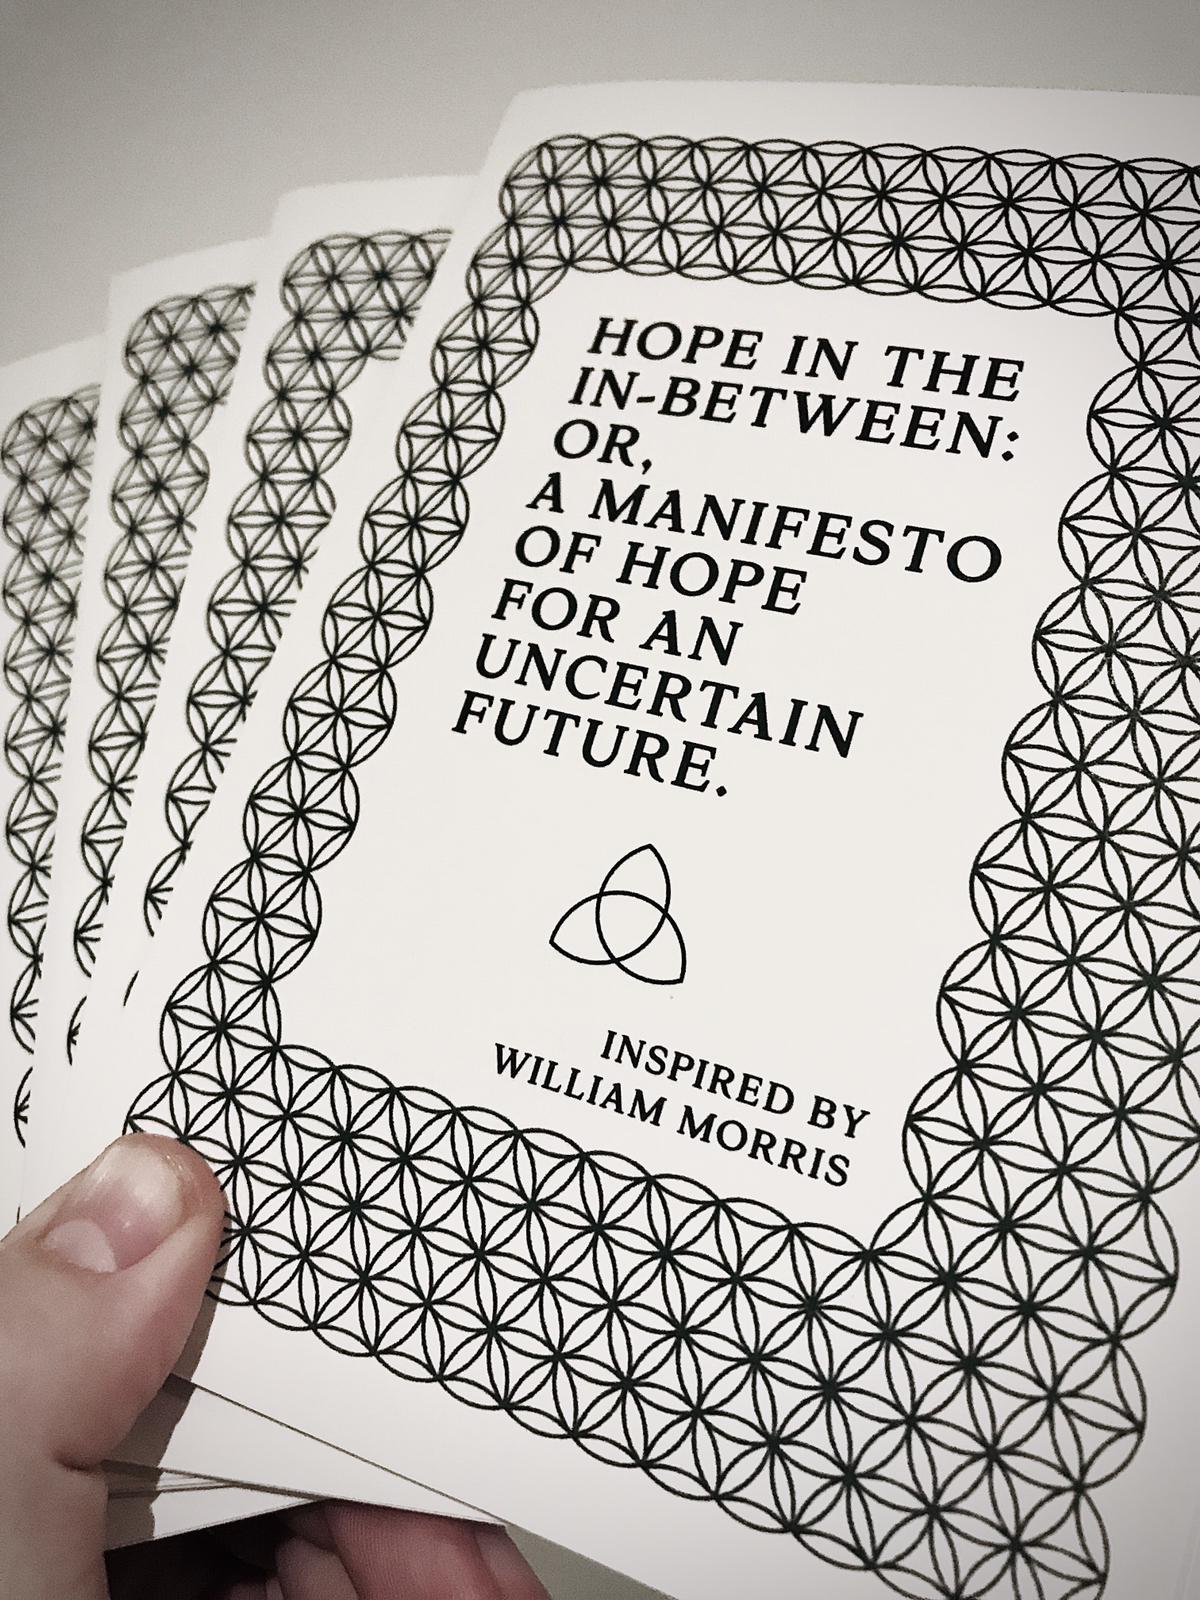 HOPE IN THE
IN-BETWEEN:
OR,
A MANIFESTO
OF HOPE
FOR AN
UNCERTAIN
FUTURE.
INSPIRED BY
WILLIAM MORRIS